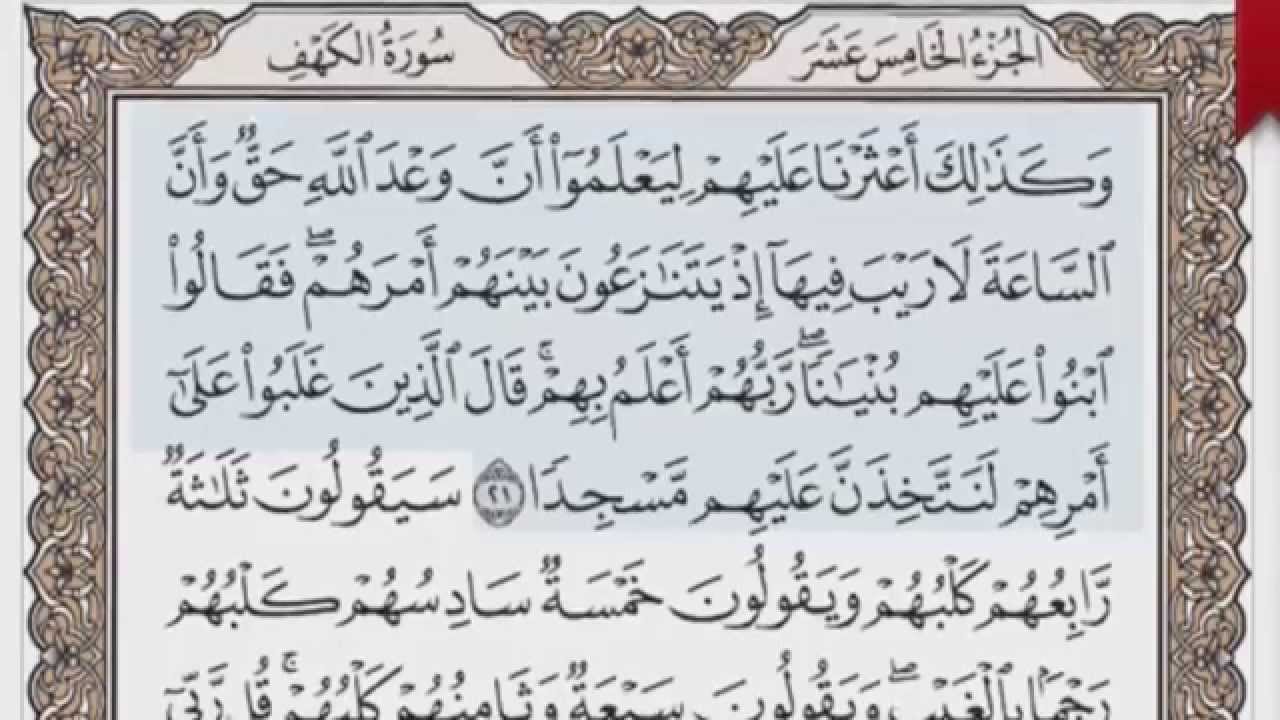 الجُزْءُ الخَامِسَ عَشَرَ
سُورَةُ الكَهْفِ
وَكَذَٰلِكَ أَعْثَرْنَا عَلَيْهِمْ لِيَعْلَمُوٓا۟ أَنَّ وَعْدَ ٱللَّهِ حَقٌّ وَأَنَّ
ٱلسَّاعَةَ لَا رَيْبَ فِيهَآ إِذْ يَتَنَٰزَعُونَ بَيْنَهُمْ أَمْرَهُمْ ۖ فَقَالُوا۟
ٱبْنُوا۟ عَلَيْهِم بُنْيَٰنًا ۖ رَّبُّهُمْ أَعْلَمُ بِهِمْ ۚ قَالَ ٱلَّذِينَ غَلَبُوا۟ عَلَىٰٓ
أَمْرِهِمْ لَنَتَّخِذَنَّ عَلَيْهِم مَّسْجِدًا ٢١ سَيَقُولُونَ ثَلَٰثَةٌ
رَّابِعُهُمْ كَلْبُهُمْ وَيَقُولُونَ خَمْسَةٌ سَادِسُهُمْ كَلْبُهُمْ
رَجْمًۢا بِٱلْغَيْبِ ۖ وَيَقُولُونَ سَبْعَةٌ وَثَامِنُهُمْ كَلْبُهُمْ ۚ قُل رَّبِّىٓ